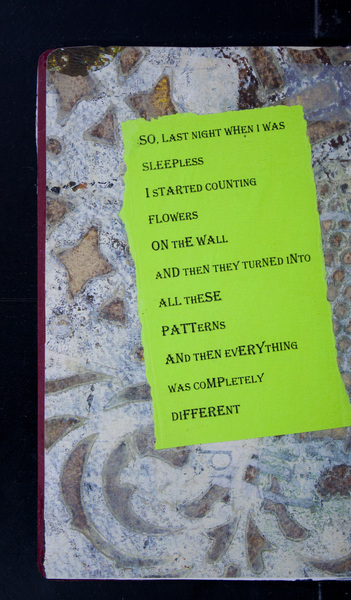 SO, LAST NIGHT WHEN I WAS
SLEEPLESS
I STARTED COUNTING
FLOWERS
ON THE WALL
AND THEN THEY TURNED INTO
ALL THESE
PATTERNS
AND THEN EVERYTHING
WAS COMPLETELY
DIFFERENT